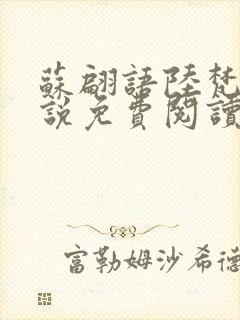 蘇翩語陸梵
說免費閱讀
富勒姆沙希德